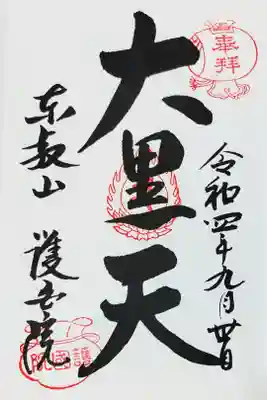 奉拝
令和四年九月廿日
大黒天
東叡山 護国院
護國院